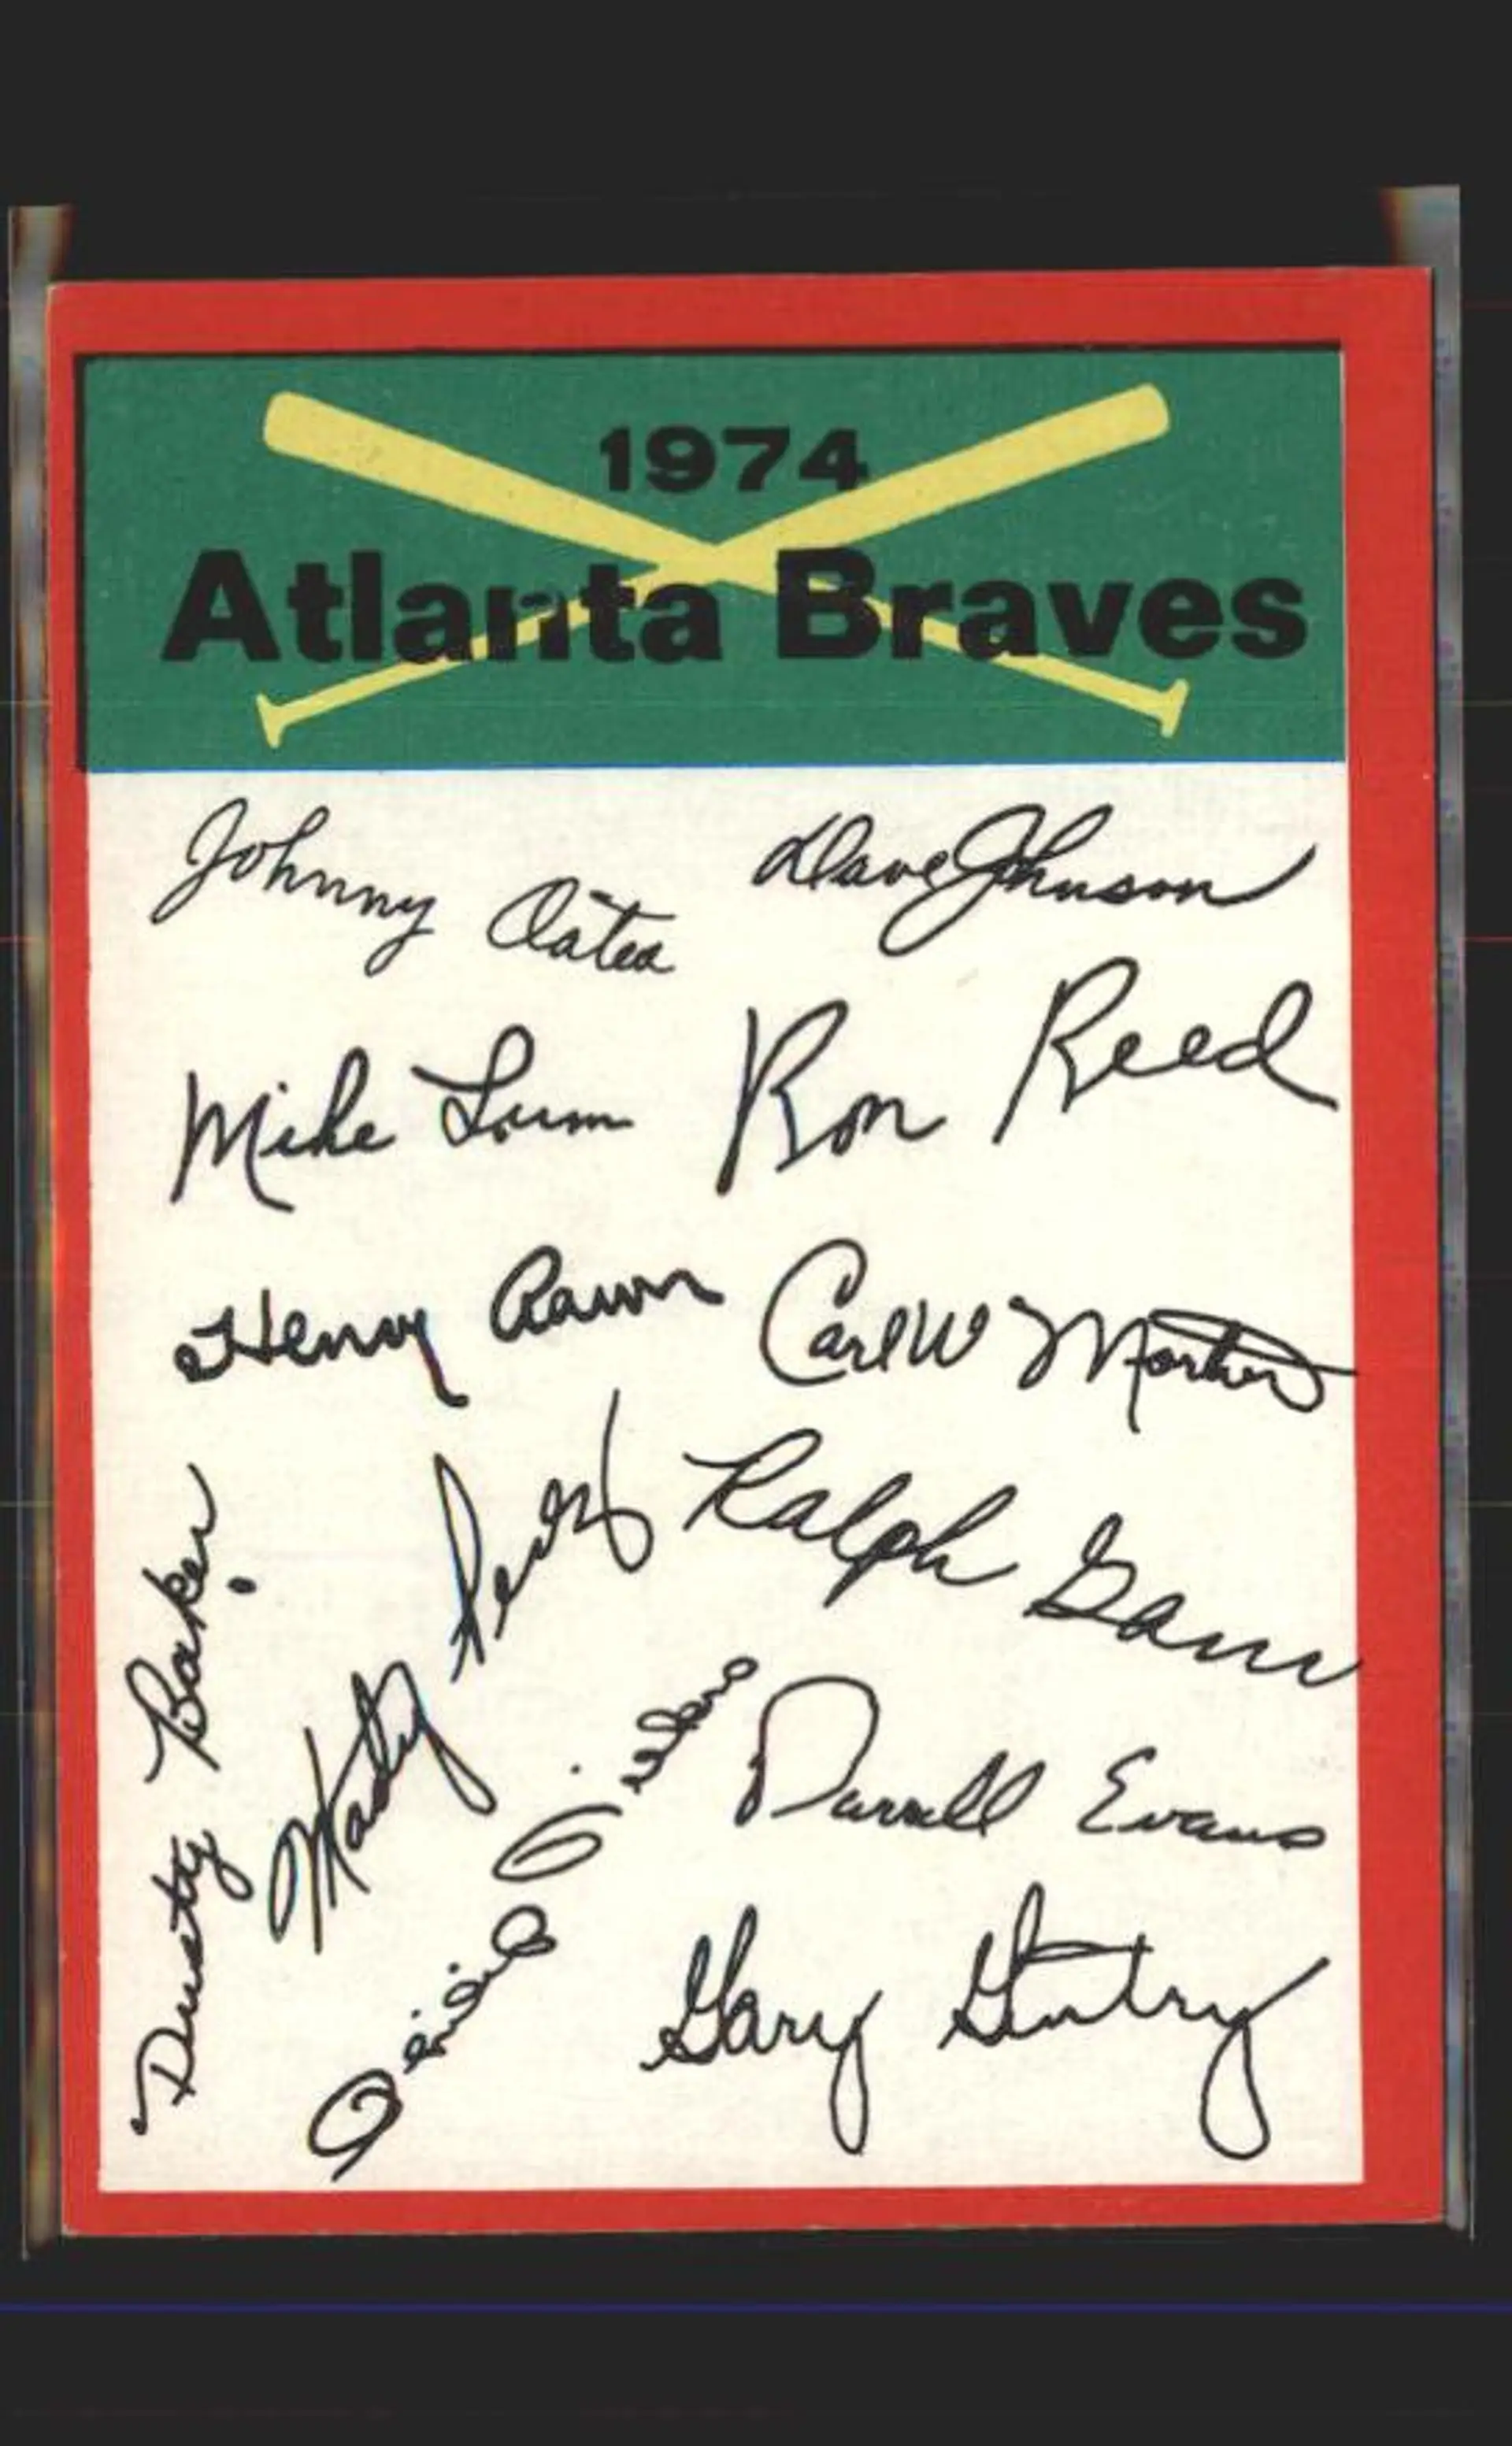 1974
Atlanta Braves
Johnny Oates
Dave Johnson
Mike Lum
Ron Reed
Henry Aaron
Carl W Morton
Marty Perez
Ralph Garr
Dusty Baker
Darrell Evans
Gary Gentry